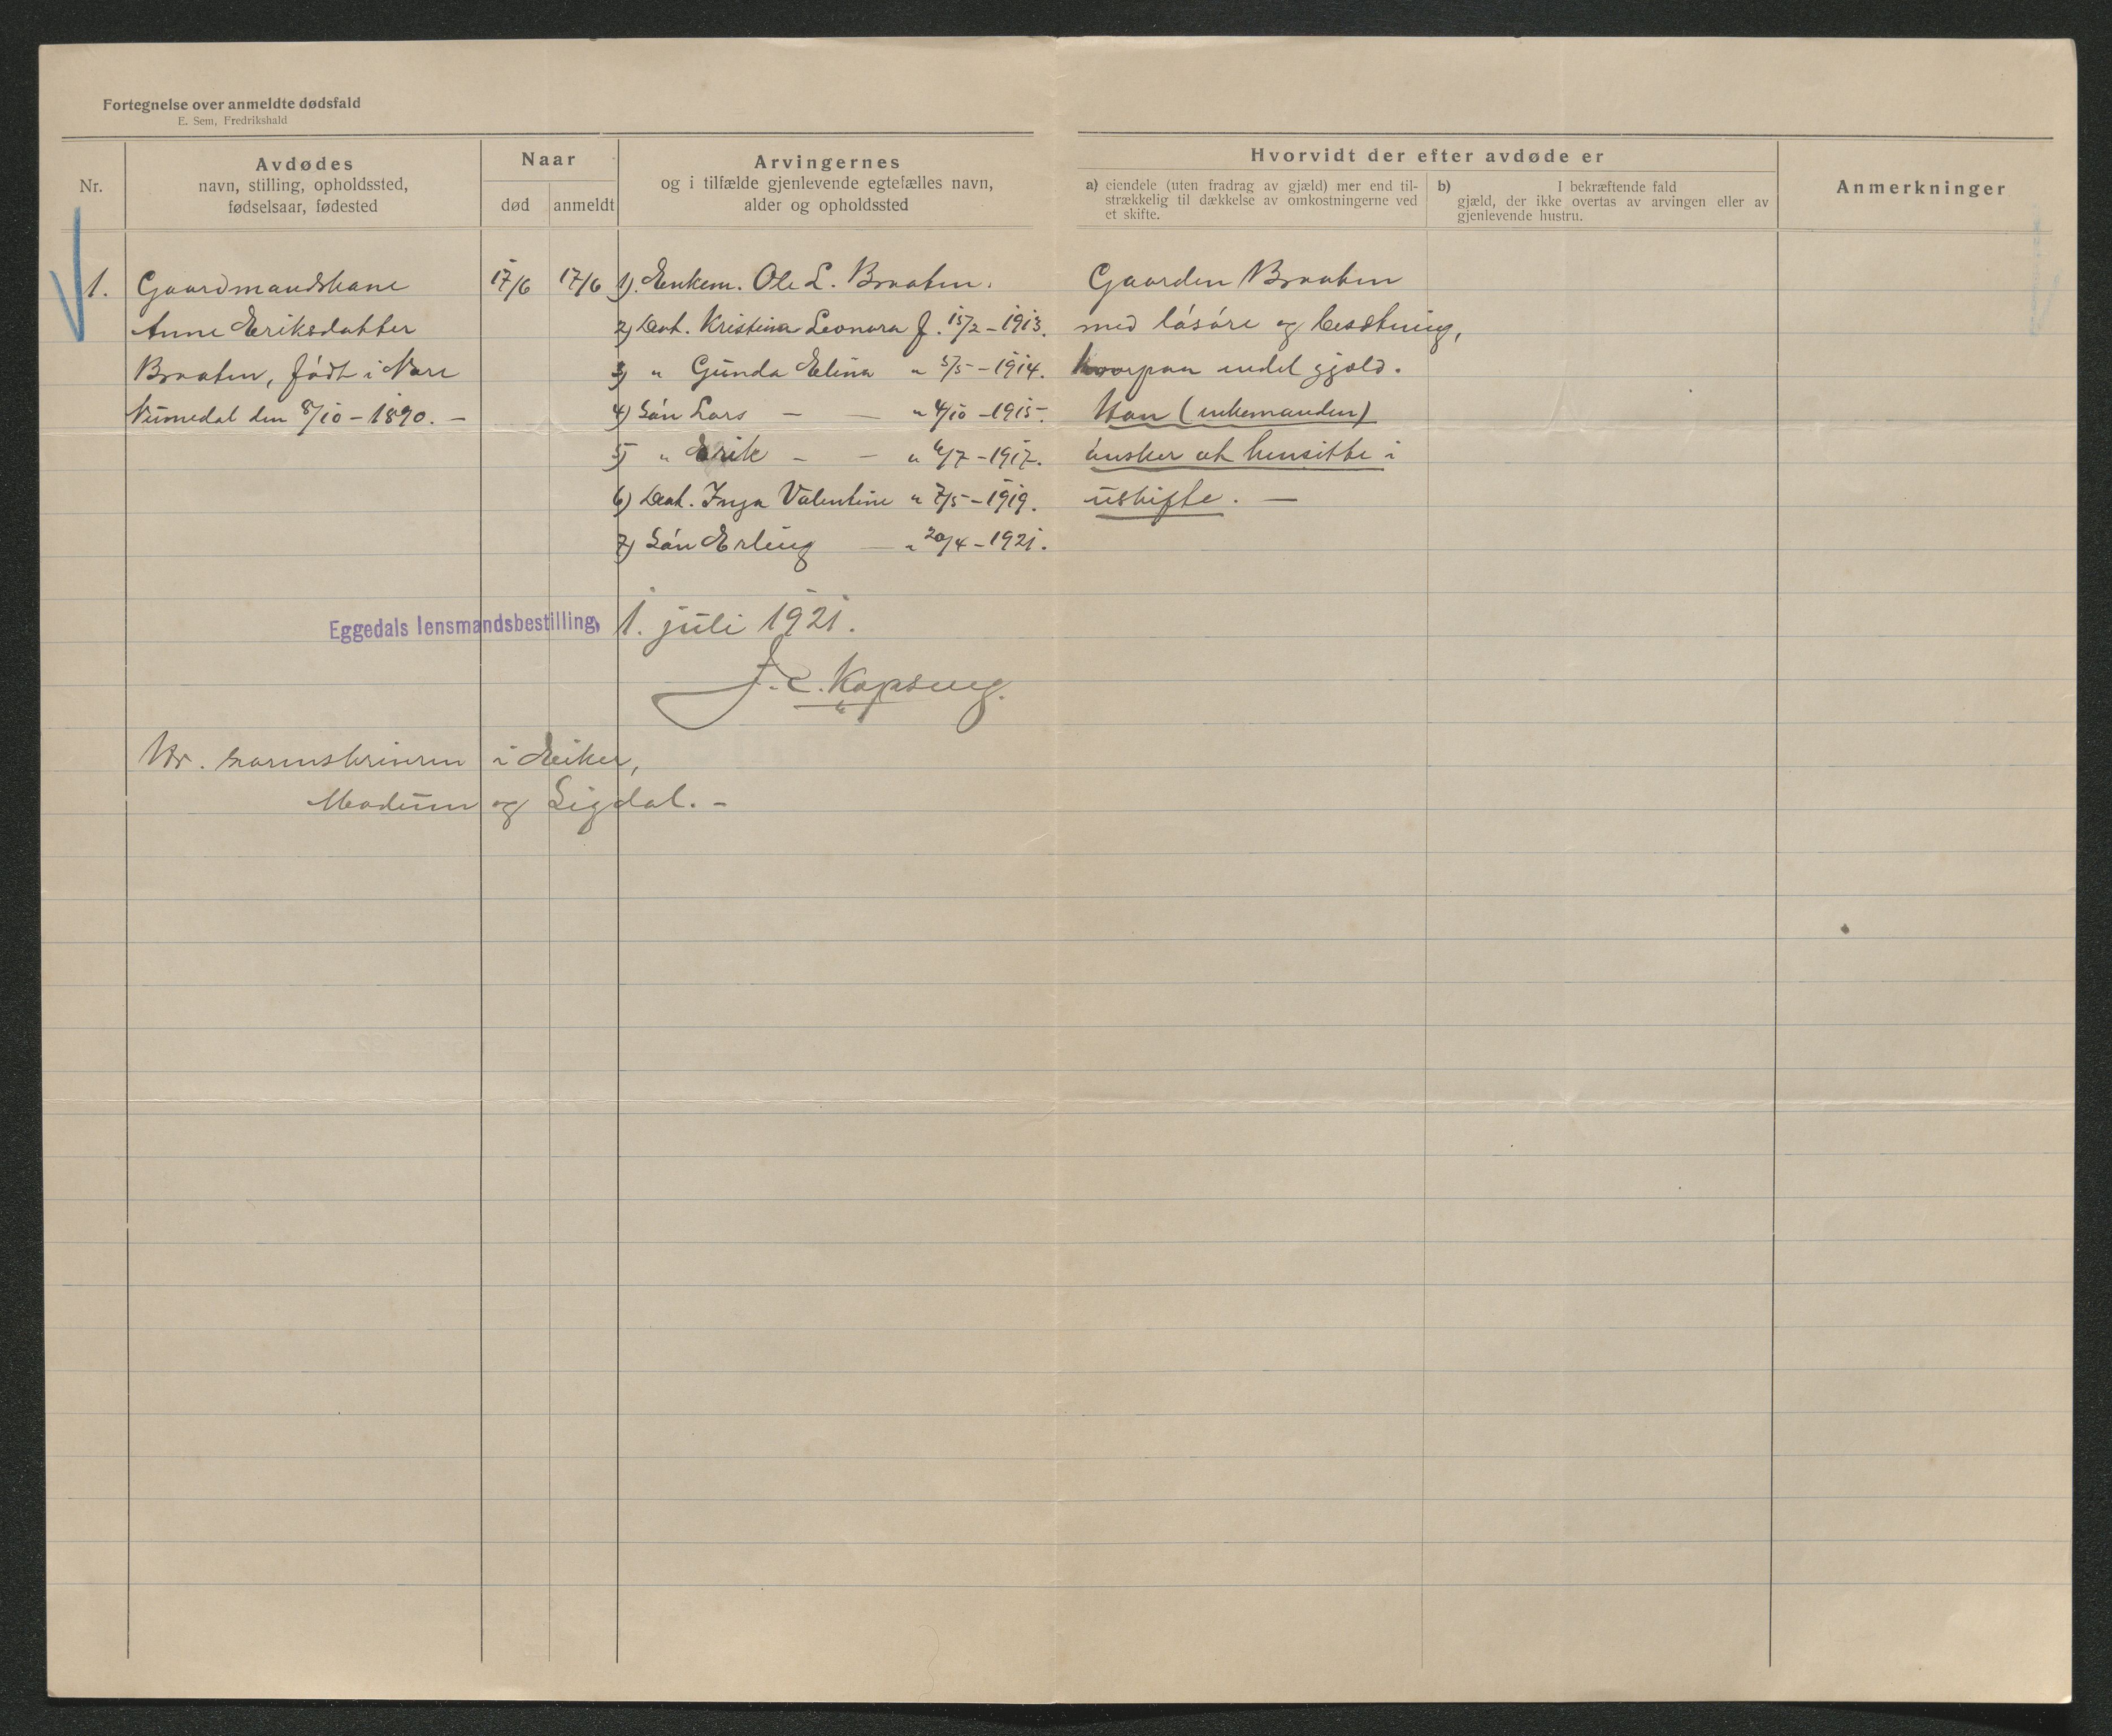 Fortegnelse over anmeldte dødsfald
E. Sem, Fredrikshald
Nr.
Avdødes
navn, stilling, opholdssted,
fødselsaar, fødested
Naar
død
anmeldt
Arvingernes
og i tilfælde gjenlevende egtefælles navn,
alder og opholdssted
Hvorvidt der efter avdøde er
a) eiendele (uten fradrag av gjæld) mer end til-
strækkelig til dækkelse av omkostningerne ved
et skifte.
b) I bekræftende fald
gjæld, der ikke overtas av arvingen eller av
gjenlevende hustru.
Anmerkninger
1.
Gaardmandskane
Anne Eriksdatter
Braaten, født i Nore
Numedal den 8/10 - 1890. -
17/6
17/6
1). Enkem. Ole L. Braaten.
2) Dat. Kristina Leonora f. 15/2 - 1913.
3) " Gunda Elina " 5/5 - 1914.
4) Søn Lars - — " 4/10 - 1915.
5) " Erik - — " 6/7 - 1917.
6) Dat. Inga Valentine " 7/5 - 1919.
7) Søn Erling — " 20/4 - 1921.
Gaarden Braaten
med løsøre og besætning,
hvorpaa endel gjæld.
Han (enkemanden)
ønsker at hensitte i
uskifte. —
Eggedals lensmandsbestilling, 1. juli 1921.
Hr. sorenskriveren i Eiker,
Modum og Sigdal. -